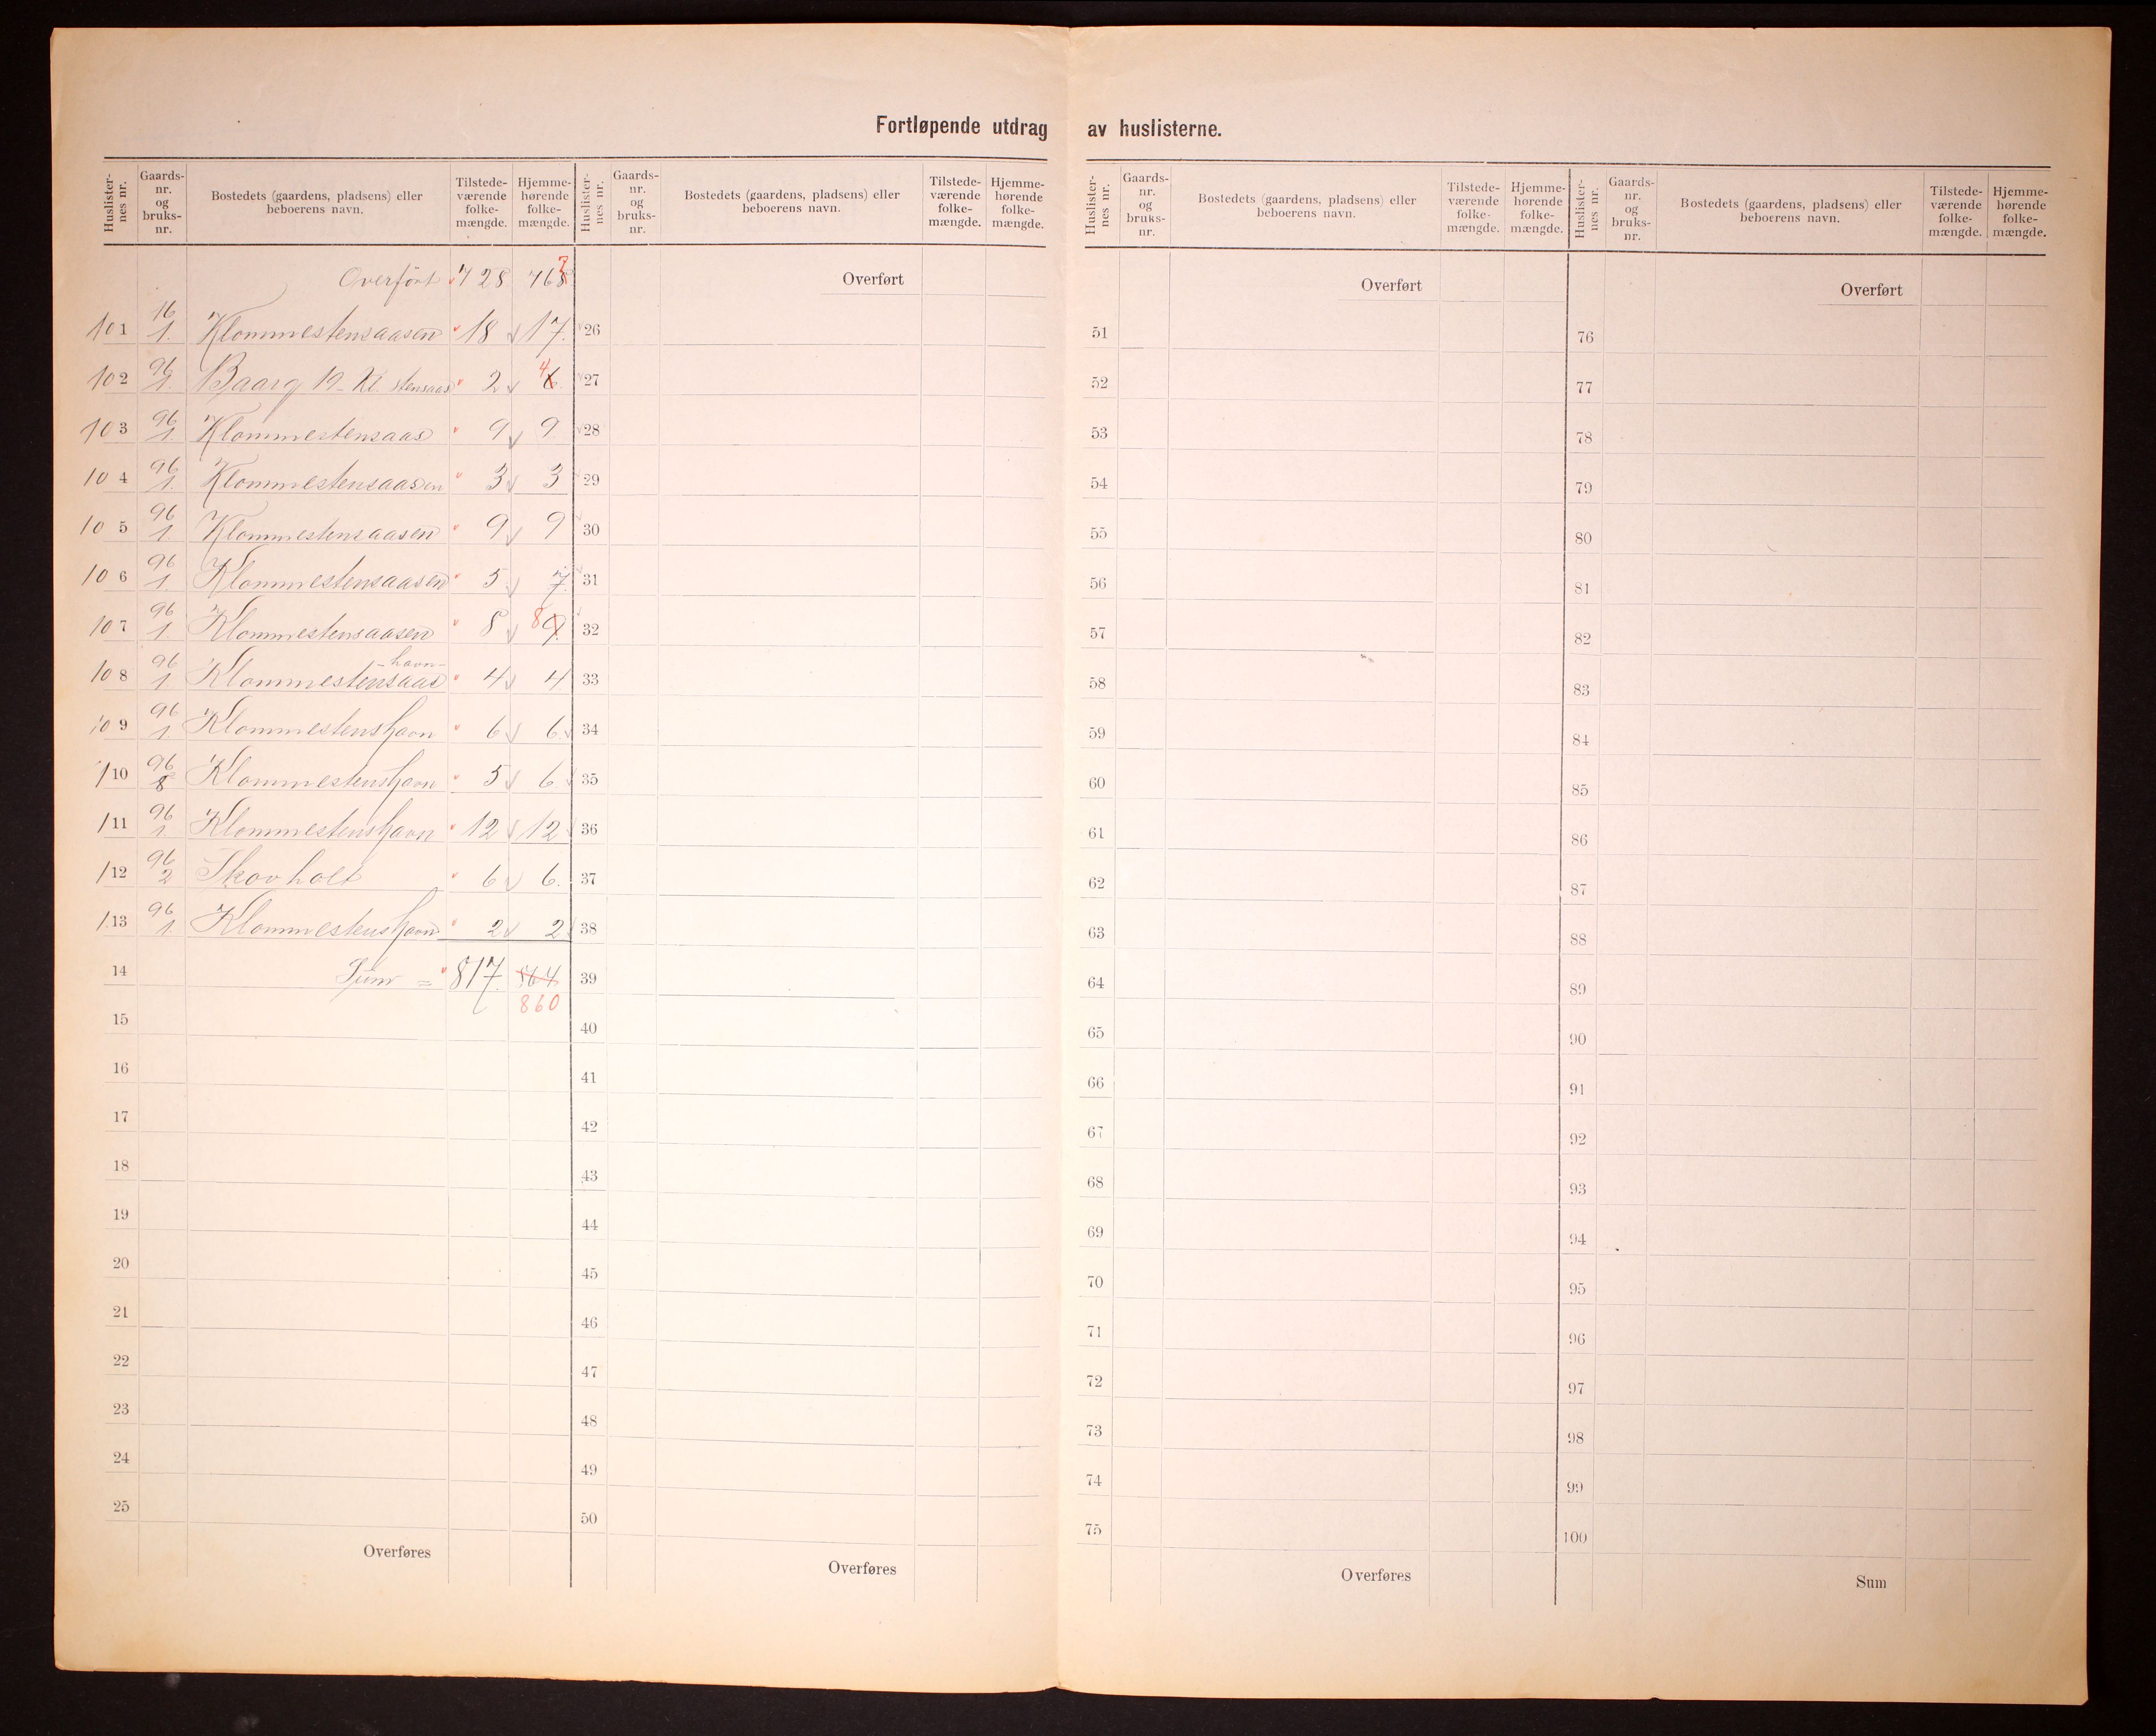 Fortløpende utdrag av huslisterne.
Huslister-nes nr. Gaards-nr. og bruks-nr. Bostedets (gaardens, pladsens) eller beboerens navn. Tilstede-værende folke-mængde. Hjemme-hørende folke-mængde.
Overført 728 768 7
101 16/1. Klommestensaasen 18 17.
102 96/1. Baarg 19 - Kl. stensaas 2 6 4
103 96/1. Klommestensaas 9 9
104 96/1. Klommestensaasen 3 3
105 96/1. Klommestensaasen 9 9
106 96/1 Klommestensaasen 5 7.
107 96/1. Klommestensaasen 8 9 8
108 96/1 Klommestensaas -havn- 4 4
109 96/1. Klommestenshavn 6 6
110 96/8 Klommestenshavn 5 6
111 96/1. Klommestenshavn 12 12
112 96/2 Skovholt 6 6.
113 96/1. Klommestenshavn 2 2
14 Sum = 817. 864
860
15
16
17
18
19
20
21
22
23
24
25
Overføres
Huslister-nes nr. Gaards-nr. og bruks-nr. Bostedets (gaardens, pladsens) eller beboerens navn. Tilstede-værende folke-mængde. Hjemme-hørende folke-mængde.
Overført
26
27
28
29
30
31
32
33
34
35
36
37
38
39
40
41
42
43
44
45
46
47
48
49
50
Overføres
Huslister-nes nr. Gaards-nr. og bruks-nr. Bostedets (gaardens, pladsens) eller beboerens navn. Tilstede-værende folke-mængde. Hjemme-hørende folke-mængde.
Overført
51
52
53
54
55
56
57
58
59
60
61
62
63
64
65
66
67
68
69
70
71
72
73
74
75
Overføres
Huslister-nes nr. Gaards-nr. og bruks-nr. Bostedets (gaardens, pladsens) eller beboerens navn. Tilstede-værende folke-mængde. Hjemme-hørende folke-mængde.
Overført
76
77
78
79
80
81
82
83
84
85
86
87
88
89
90
91
92
93
94
95
96
97
98
99
100
Sum